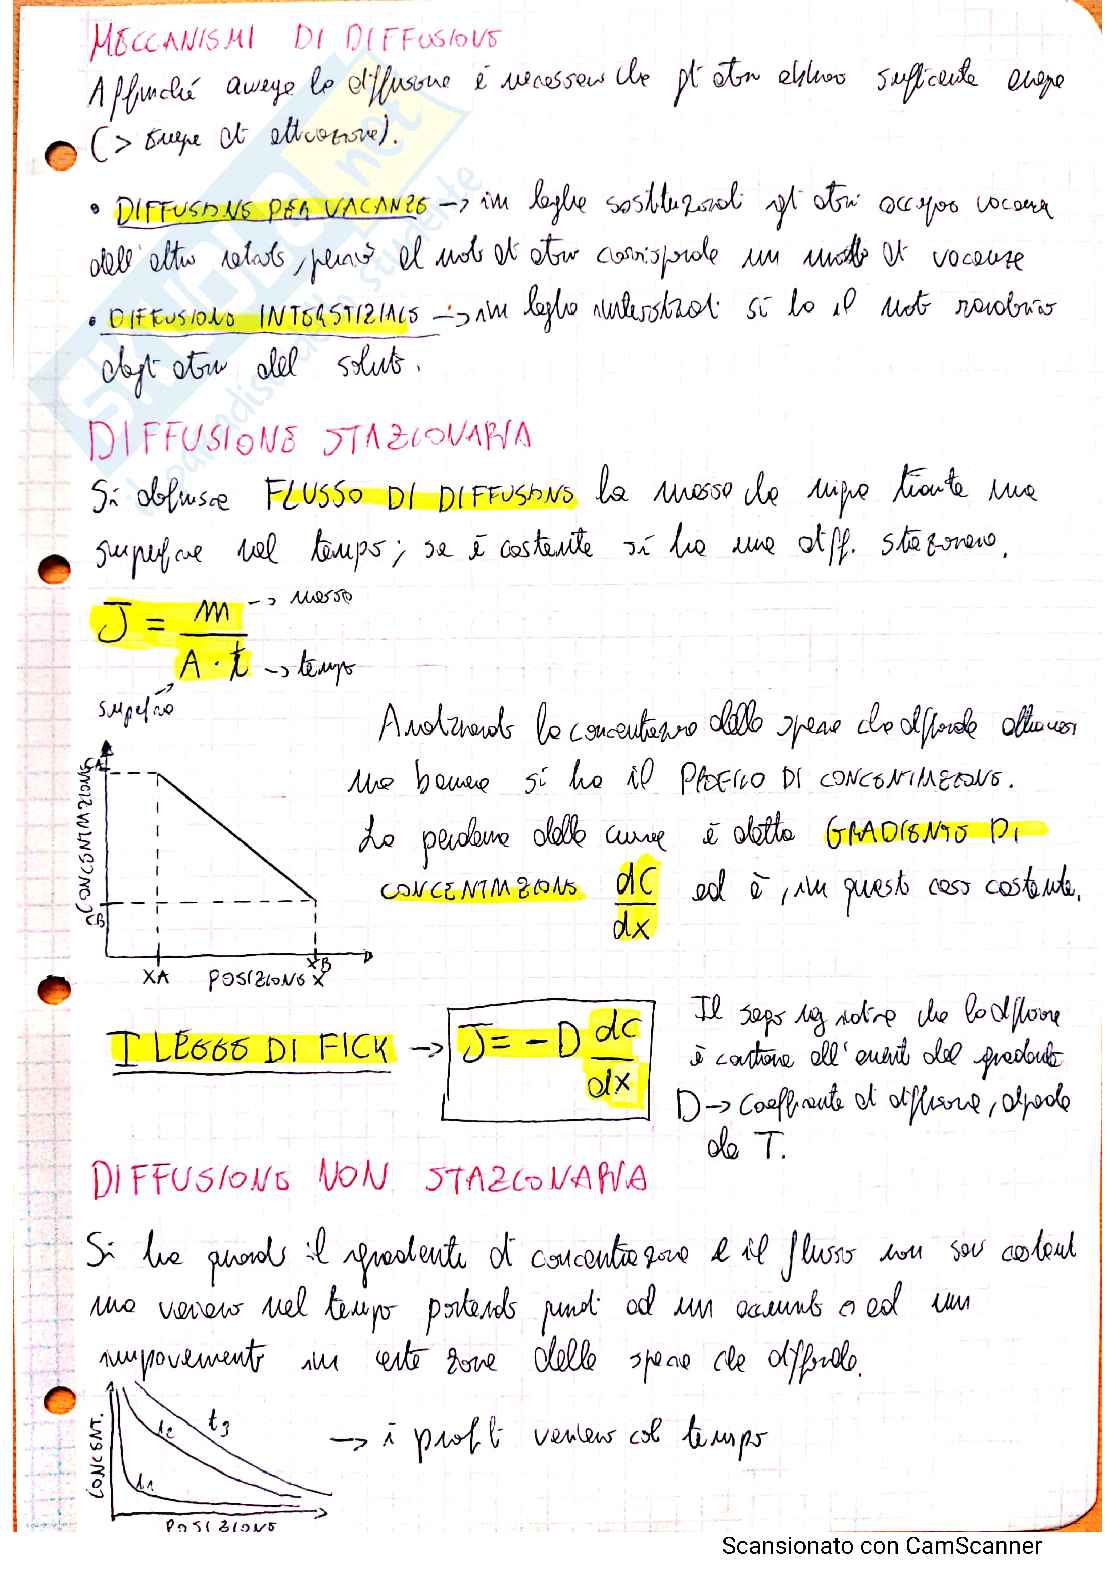 MECCANISMI DI DIFFUSIONE
Affinché avvenga la diffusione è necessario che gli atomi abbiano sufficiente energia
(> energia di attivazione).
• DIFFUSIONE PER VACANZE → in leghe sostituzionali gli atomi occupano vacanza
dell'altro reticolo, perciò al moto di atomi corrisponde un moto di vacanze
• DIFFUSIONE INTERSTIZIALE → in leghe interstiziali si ha il moto
degli atomi del soluto.
DIFFUSIONE STAZIONARIA
Si definisce FLUSSO DI DIFFUSIONE la massa che migra tramite una
superficie nel tempo; se è costante si ha una diff. stazionaria.
J = m / A · t
→ massa
→ tempo
superficie
Analizzando la concentrazione della specie che diffonde attraverso
una barriera si ha il PROFILO DI CONCENTRAZIONE.
La pendenza della curva è detta GRADIENTE DI
CONCENTRAZIONE dC/dx ed è, in questo caso costante.
CONCENTRAZIONE
CA
CB
XA
XB
POSIZIONE X
I LEGGE DI FICK → J = - D dC/dx
Il segno neg indica che la diffusione
è contraria all' del gradiente
D → Coefficiente di diffusione, dipende
da T.
DIFFUSIONE NON STAZIONARIA
Si ha quando il gradiente di concentrazione e il flusso non sono costanti
ma variano nel tempo portando quindi ad un accumulo o ad un
impoverimento in certe zone della specie che diffonde.
CONCENT.
t1
t2
t3
POSIZIONE
→ i profili variano col tempo
SKUOLA.net
il paradiso dello studente
Scansionato con CamScanner